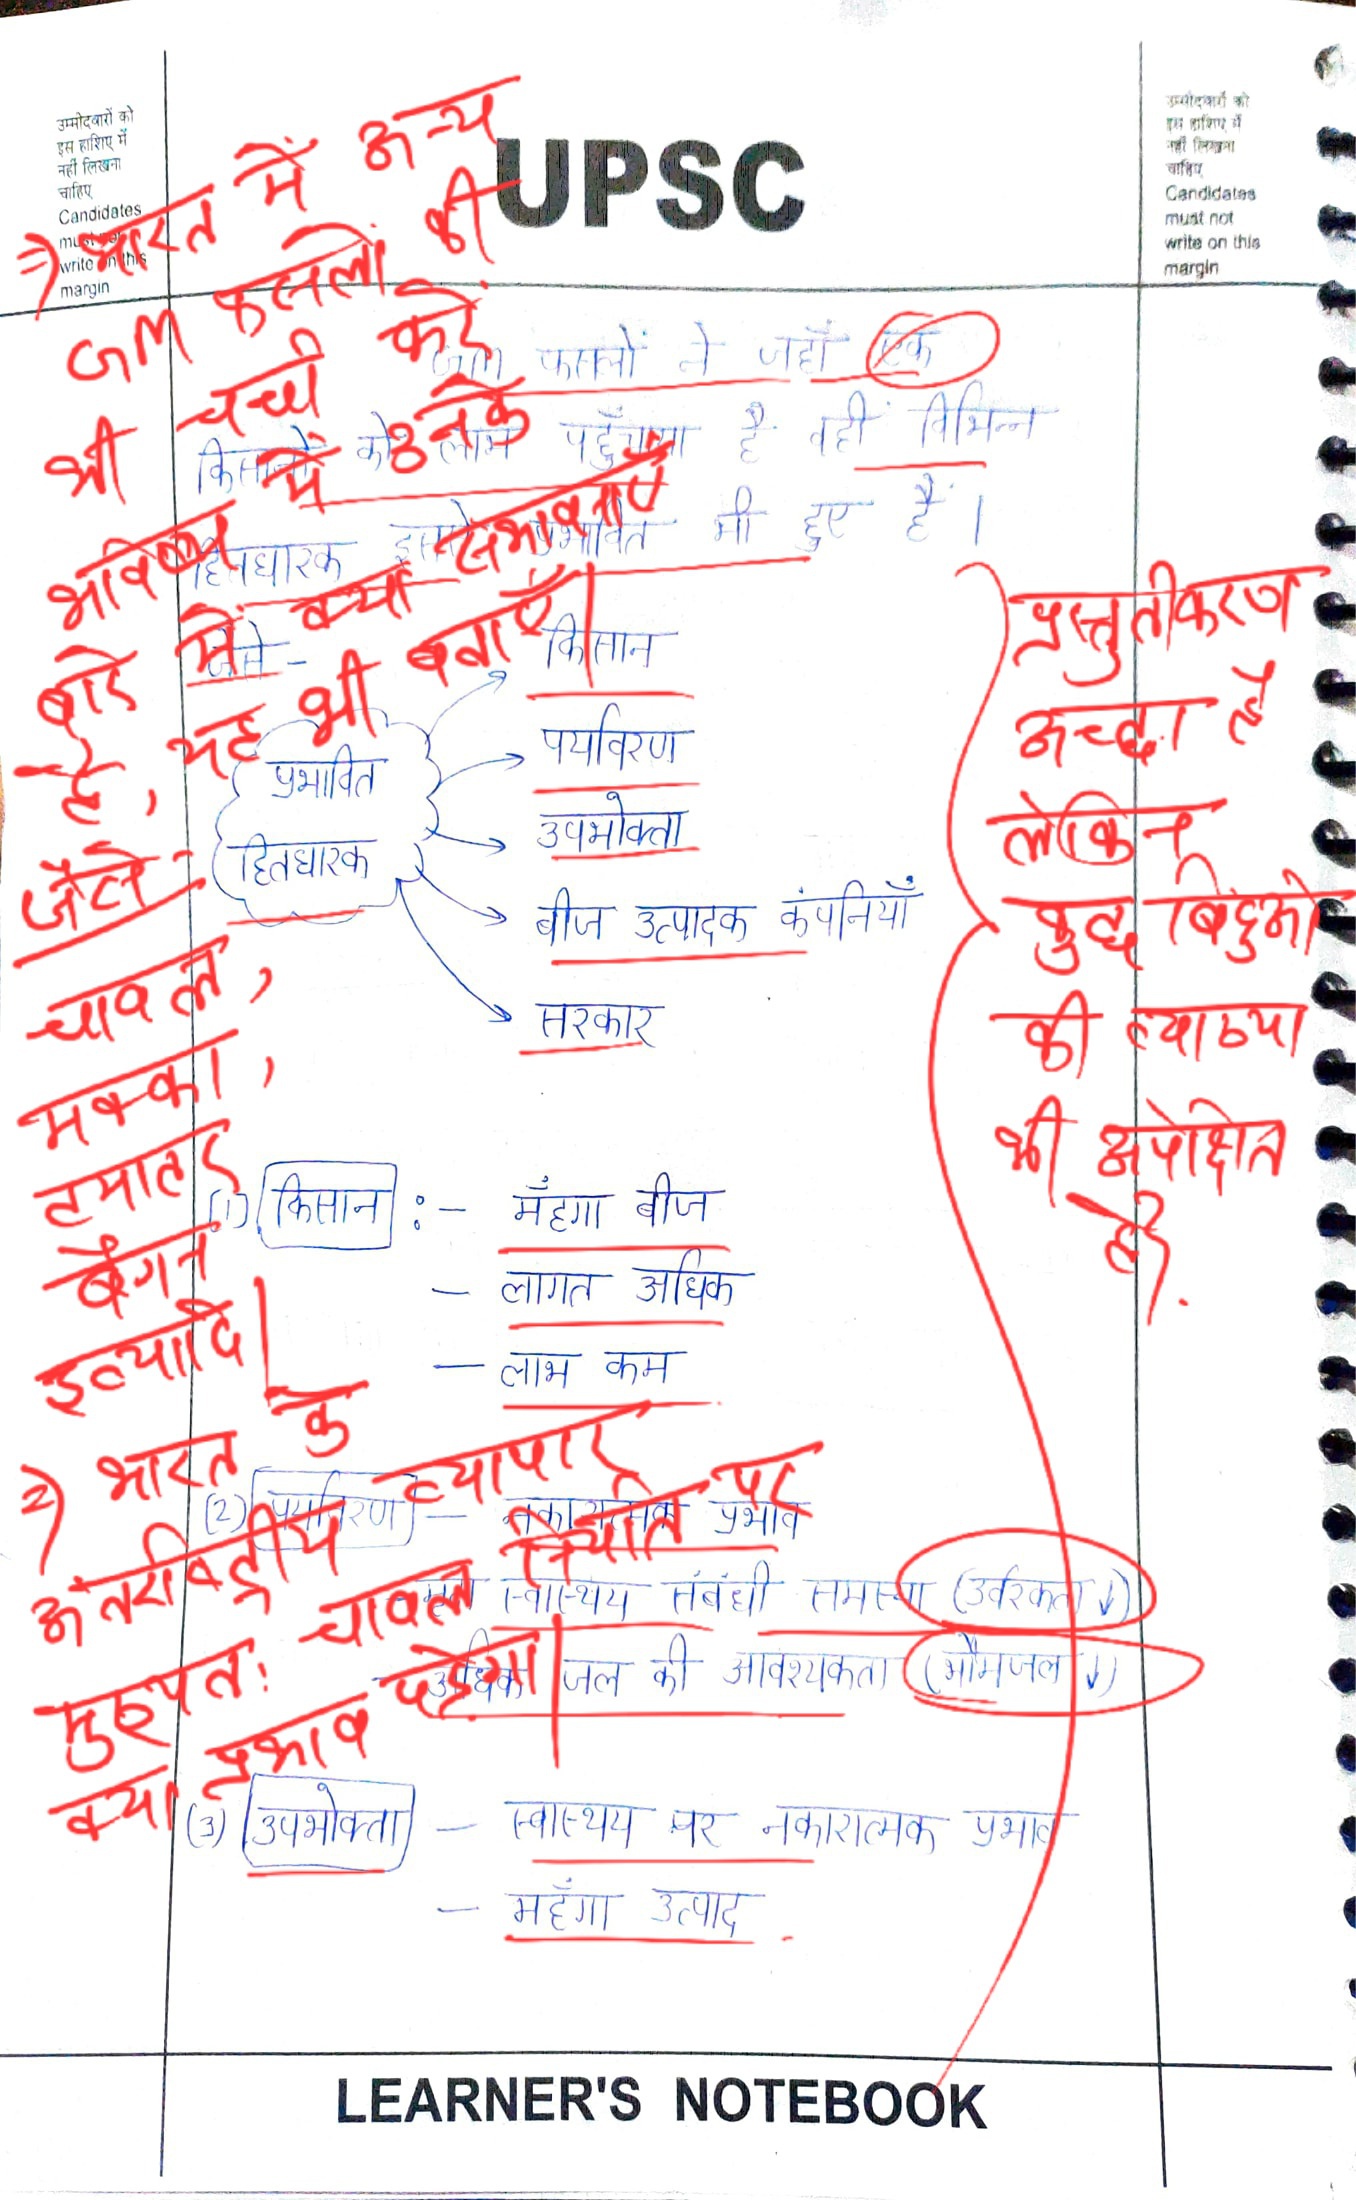 उम्मीदवारों को
इस हाशिए में
नहीं लिखना
चाहिए
Candidates
must not
write on this
margin
UPSC
उम्मीदवारों को
इस हाशिए में
नहीं लिखना
चाहिए
Candidates
must not
write on this
margin
GM फसलों ने जहाँ एक
किसानों को लाभ पहुँचाया है वहीं विभिन्न
हितधारक इससे प्रभावित भी हुए हैं।
जैसे -
प्रभावित
हितधारक
किसान
पर्यावरण
उपभोक्ता
बीज उत्पादक कंपनियाँ
सरकार
(1) किसान :- मँहगा बीज
- लागत अधिक
- लाभ कम
(2) पर्यावरण - नकारात्मक प्रभाव
स्वास्थय संबंधी समस्या (उर्वरकता ↓)
- अधिक जल की आवश्यकता (भौमजल ↓)
(3) उपभोक्ता - स्वास्थय पर नकारात्मक प्रभाव
- महँगा उत्पाद
=) भारत में अन्य
GM फसलों की
भी चर्चा करें
भविष्य में उनके
बारे में क्या संभावनाएं
है, यह भी बताएँ।
जैसे -
चावल,
मक्का,
टमाटर
बैंगन
इत्यादि।
=) भारत के
अंतर्राष्ट्रीय व्यापार
मुख्यतः चावल निर्यात पर
क्या प्रभाव पड़ेगा।
प्रस्तुतीकरण
अच्छा है
लेकिन
कुछ बिंदुओं
की व्याख्या
भी अपेक्षित
है.
LEARNER'S NOTEBOOK